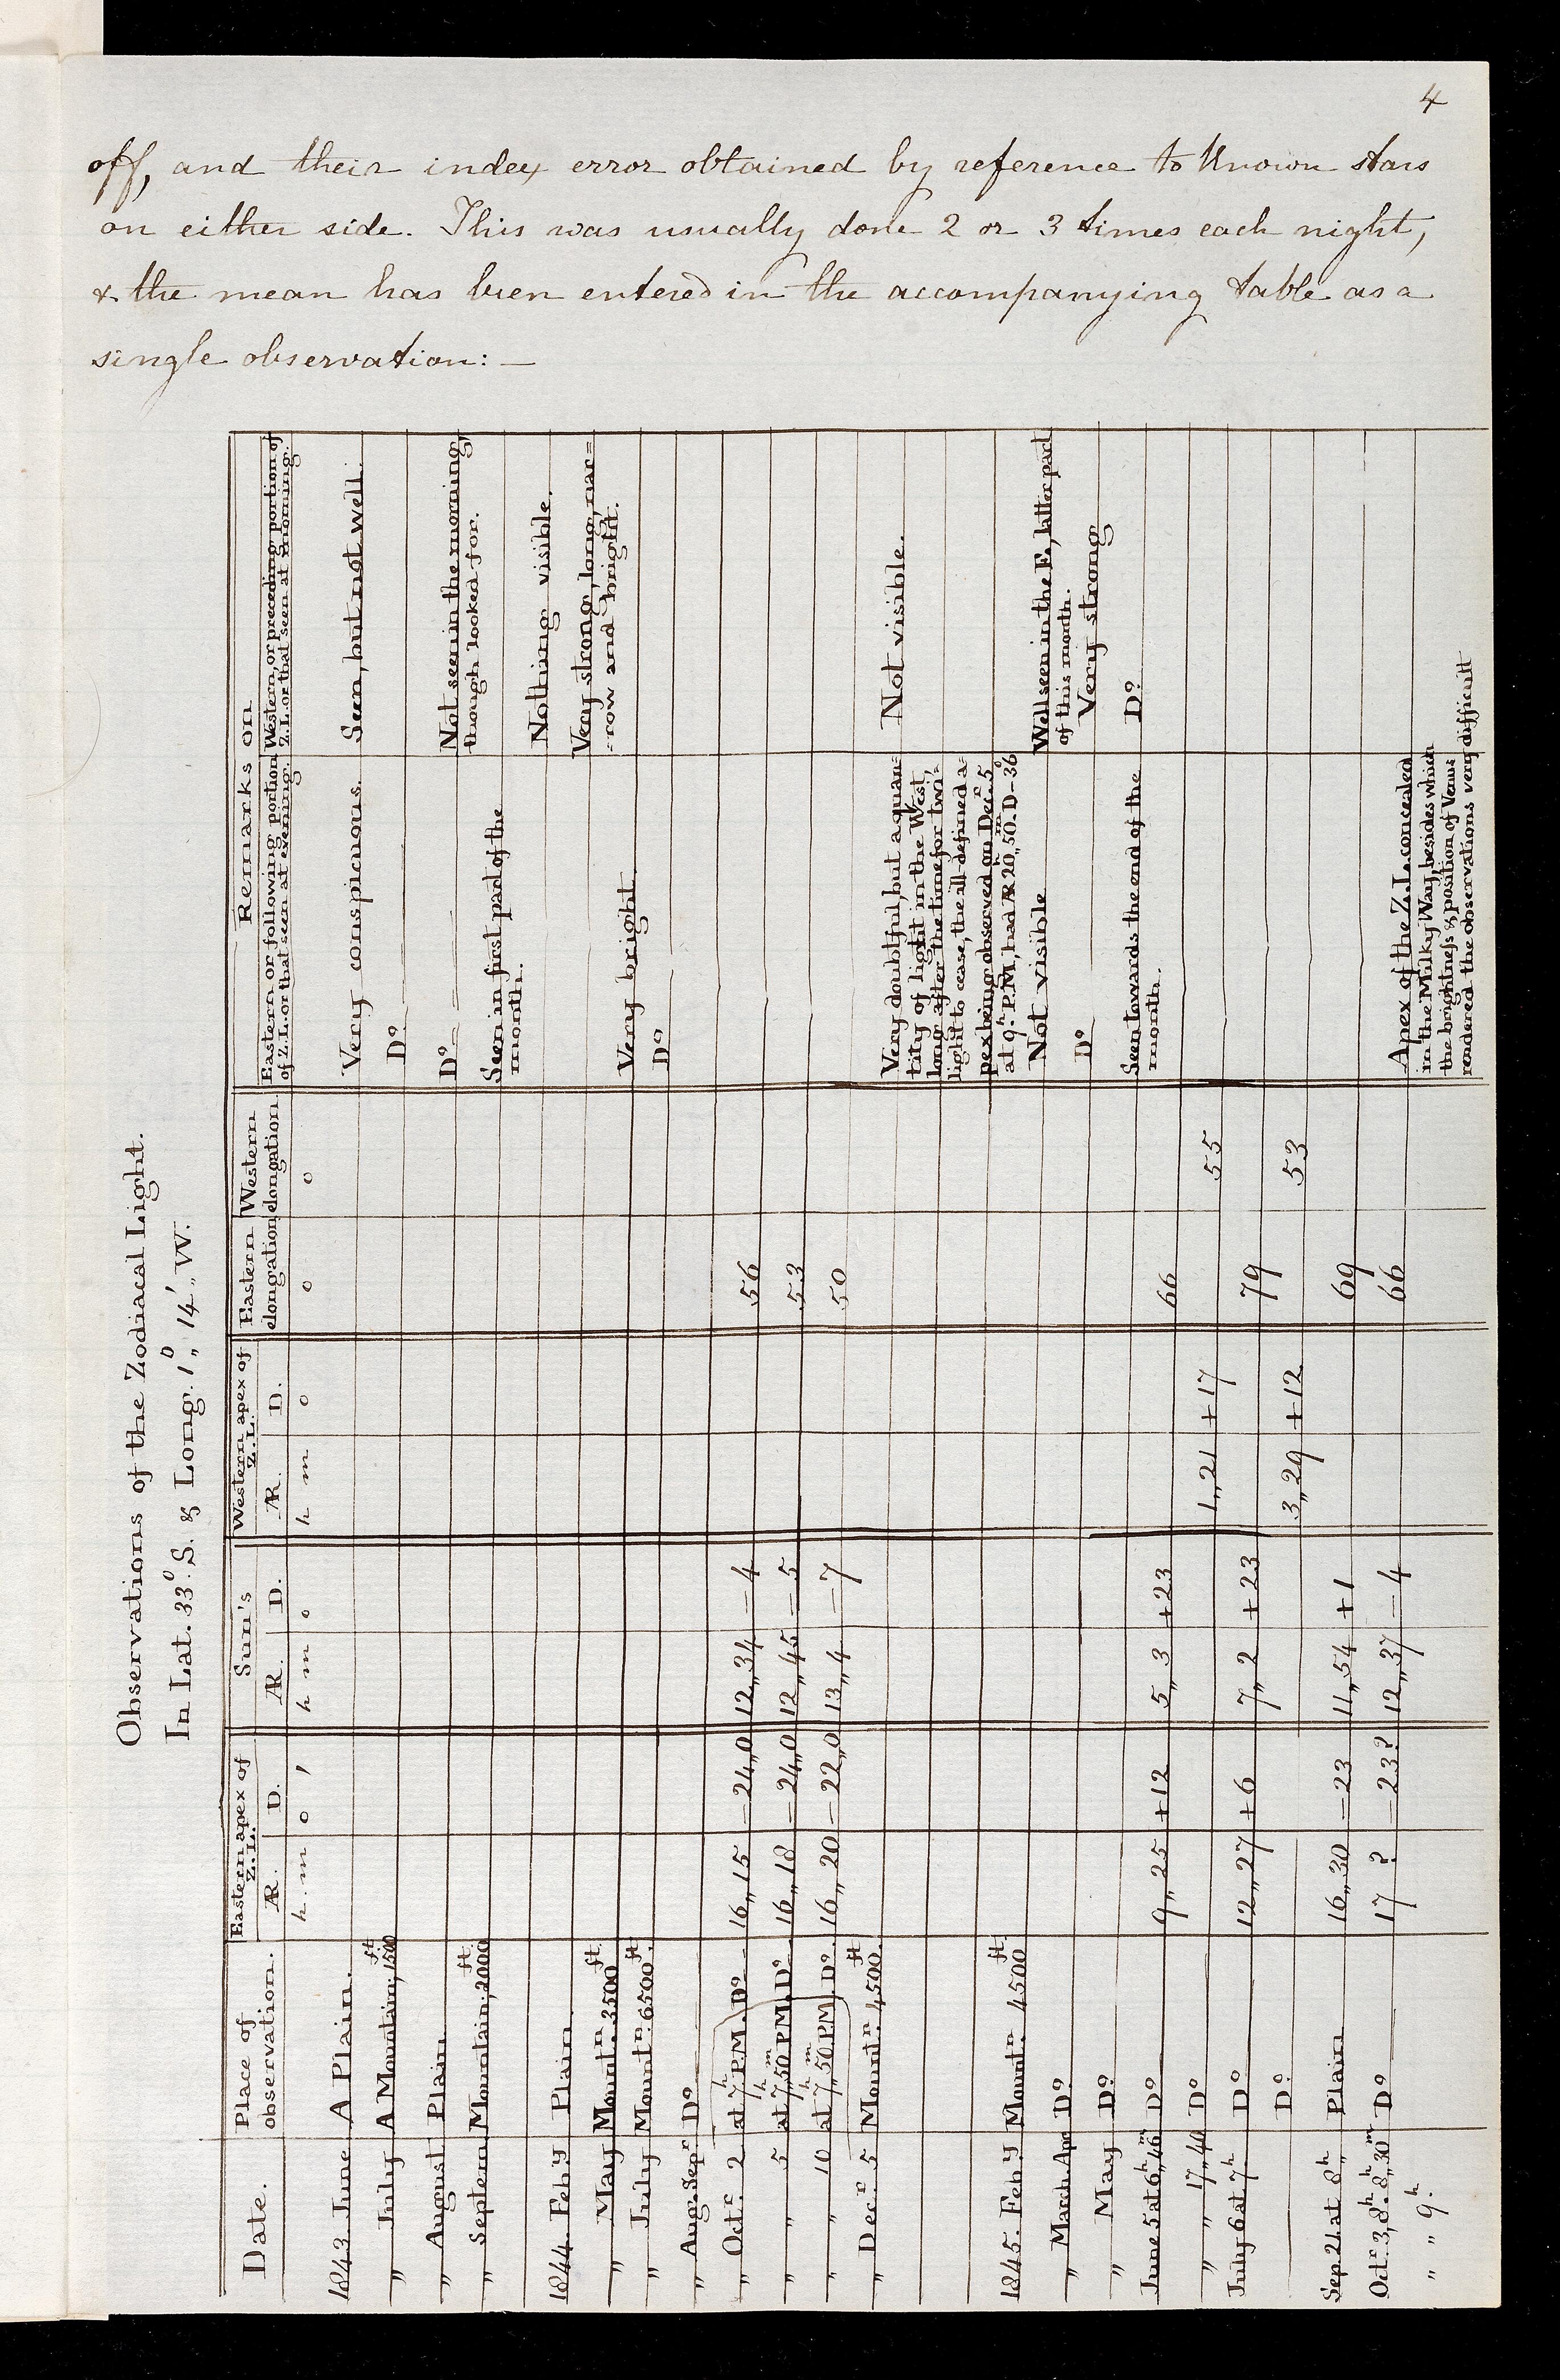 4
off, and their index error obtained by reference to known stars
on either side. This was usually done 2 or 3 times each night,
& the mean has been entered in the accompanying table as a
single observation: —
Observations of the Zodiacal Light.
In Lat. 33°. S. & Long. 1°„ 14'„ W.
Date. Place of observation. Eastern apex of Z. L. Sun's Western apex of Z. L. Eastern elongation Western elongation Remarks on
Æ. D. Æ. D. Æ. D. Eastern or following portion of Z. L. or that seen at evening. Western, or preceding portion of Z. L. or that seen at morning.
h. m ° ' h m ° h m ° ° °
1843. June A Plain. Very conspicuous. Seen, but not well.
„ July A Mountain; 1500 ft. D°
„ August Plain D° Not seen in the morning, though looked for.
„ Septem. Mountain; 2000 ft. Seen in first part of the month.
1844. Feby Plain Nothing visible.
„ May Mountn. 3500 ft. Very strong, long, nar=-row and bright.
„ July Mountn. 6500 ft. Very bright
„ Aug. Sepr D° D°
„ Octr. 2 at 7h P.M. D° 16„15 –24„0 12„34 –4 56
„ 5 at 7h„50m P.M. D° 16„18 –24„0 12„45 –5 53
„ 10 at 7h„50m P.M. D° 16„20 –22„0 13„4 –7 50
„ Decr. 5 Mountn. 4,500 ft. Very doubtful, but a quan=tity of light in the West, long after the time for twi=light to cease, the ill-defined a=pex being observed on Decr. 5 at 9h. P.M., had Æ 20h„50m. D–36° Not visible.
1845. Feby Mountn. 4500 ft. Not visible Well seen in the E., latter part of this month.
„ March Apr D° D° Very strong
„ May D° Seen towards the end of the month. D°
June 5 at 6h„46m D° 9„25 +12 5„3 +23 66
„ „ 17„40 D° 1„21 +17 55
July 6 at 7h D° 12„27 +6 7„2 +23 79
D° 3„29 +12 53
Sep. 21 at 8h Plain 16„30 –23 11„54 +1 69
Octr. 3, 8h. 8h„30m D° 17 ? –23? 12„37 –4 66 Apex of the Z. L. concealed in the Milky Way, besides which the brightness & position of Venus rendered the observations very difficult
„ „ 9h.